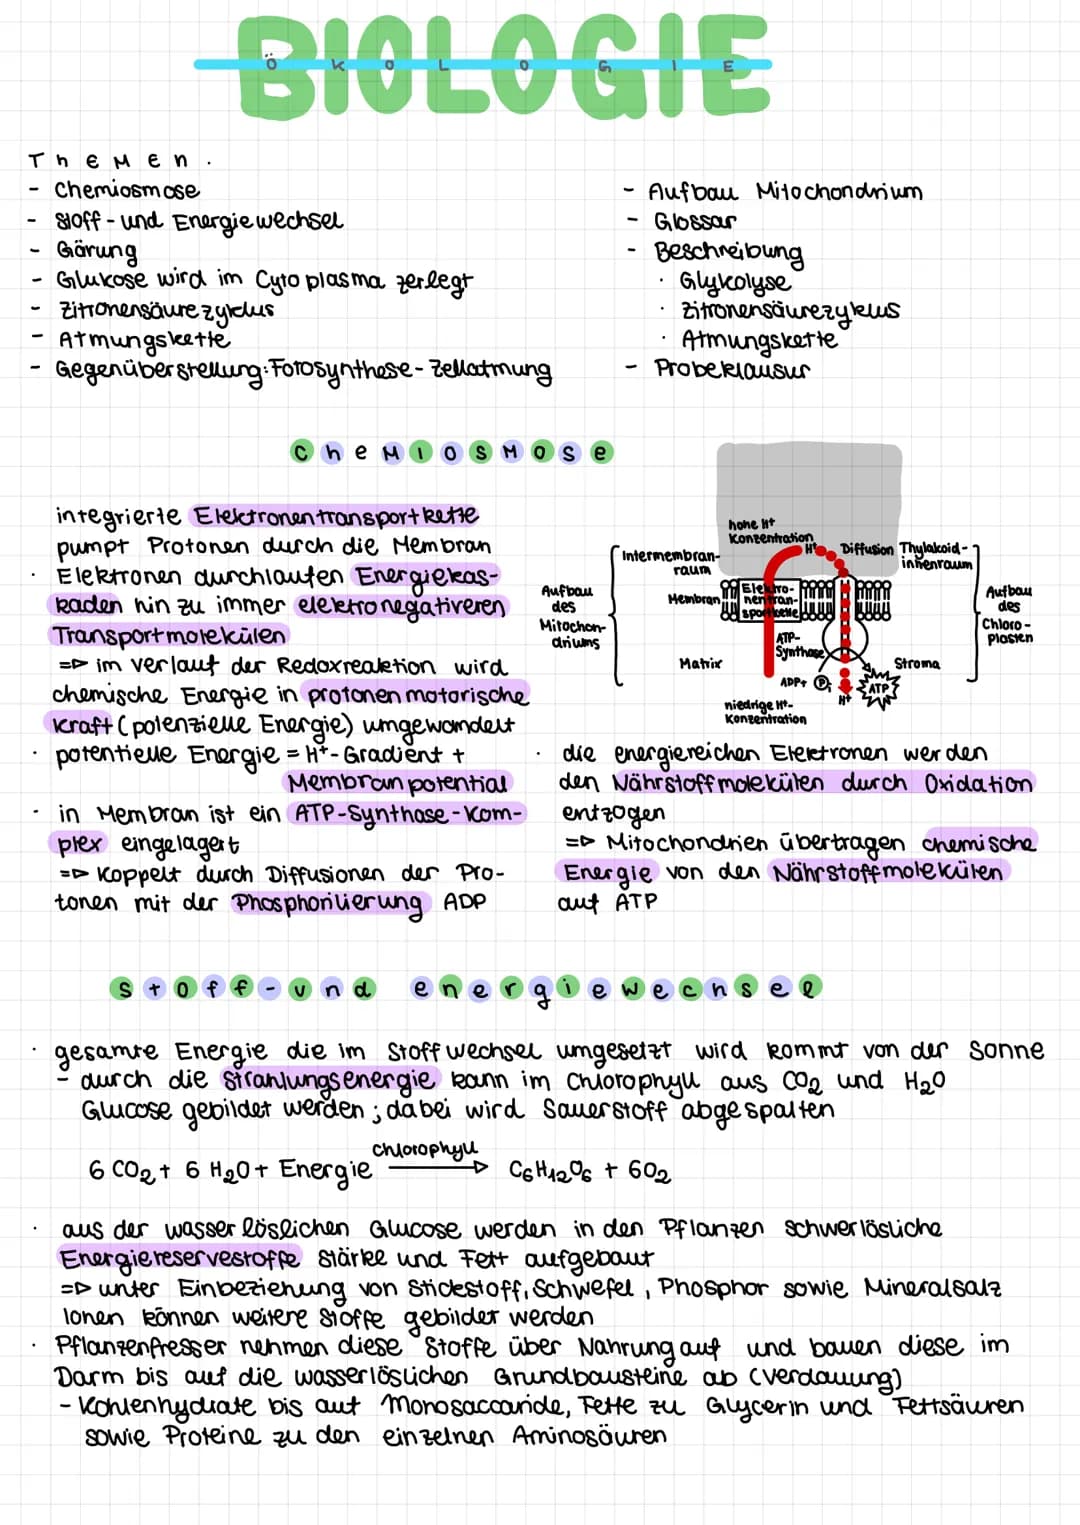 BIOLOGIE
ÖKOLOGIE
Themen.
- Chemiosmose
- Stoff- und Energiewechsel
- Gärung
- Glukose wird im Cytoplasma zerlegt
- Zitronensäurezyklus
- Atmungskette
- Gegenüberstellung: Fotosynthese - Zellatmung
- Aufbau Mitochondrium
- Glossar
- Beschreibung
· Glykolyse
· Zitronensäurezyklus
· Atmungskette
- Probeklausur
Chemiosmose
integrierte Elektronentransportkette
pumpt Protonen durch die Membran
· Elektronen durchlaufen Energiekas-
kaden hin zu immer elektronegativeren
Transportmolekülen
=> im verlauf der Redoxreaktion wird
chemische Energie in protonenmotorische
Kraft (potenzielle Energie) umgewandelt
· potentielle Energie = H+-Gradient +
Membranpotential
· in Membran ist ein ATP-Synthase-Kom-
plex eingelagert
=> Koppelt durch Diffusionen der Pro-
tonen mit der Phosphorilierung ADP
hohe H+
Konzentration
H+
Diffusion
Intermembran-
raum
Thylakoid-
innenraum
Aufbau
des
Mitochon-
driums
Membran
Elektro-
nentran-
sportkette
Aufbau
des
Chloro-
plasten
ATP-
Synthase
Matrix
Stroma
ADP+ Pi
ATP
H+
niedrige H+-
Konzentration
· die energiereichen Elektronen werden
den Nährstoffmolekülen durch Oxidation
entzogen
=> Mitochondrien übertragen chemische
Energie von den Nährstoffmolekülen
auf ATP
Stoff- und energiewechsel
· gesamte Energie die im Stoffwechsel umgesetzt wird kommt von der Sonne
- durch die Strahlungsenergie kann im Chlorophyll aus CO2 und H2O
Glucose gebildet werden; dabei wird Sauerstoff abgespalten
Chlorophyll
6 CO2 + 6 H2O + Energie → C6H12O6 + 6O2
· aus der wasserlöslichen Glucose werden in den Pflanzen schwerlösliche
Energiereservestoffe Stärke und Fett aufgebaut
=> unter Einbeziehung von Stickstoff, Schwefel, Phosphor sowie Mineralsalz
Ionen können weitere Stoffe gebildet werden
· Pflanzenfresser nehmen diese Stoffe über Nahrung auf und bauen diese im
Darm bis auf die wasserlöslichen Grundbausteine ab (Verdauung)
- Kohlenhydrate bis auf Monosaccaride, Fette zu Glycerin und Fettsäuren
sowie Proteine zu den einzelnen Aminosäuren